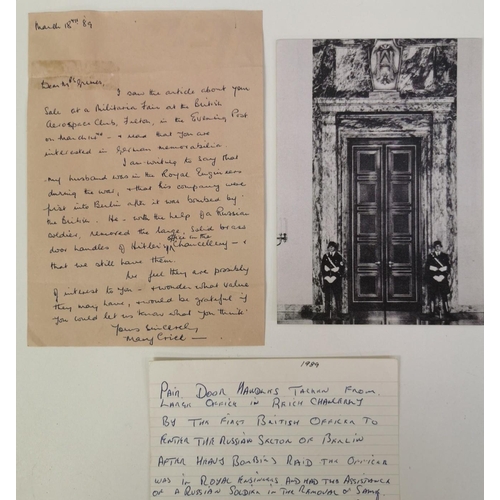 March 18TH 89
Dear Mrs Grimes,
I saw the article about your
Sale at a Militaria Fair at the British
Aerospace Club, Filton, in the Evening Post
on March — & read that you are
interested in German memorabilia.
I am writing to say that
my husband was in the Royal Engineers
during the war, & that his company were
first into Berlin after it was bombed by
the British. He - with the help of a Russian
soldier, removed the large, solid brass
door handles of Hitler's office in the Chancellery - &
that we still have them.
We feel they are possibly
of interest to you - & wonder what value
they may have, & would be grateful if
you could let us know what you think.
Yours Sincerely,
Mary Crick
1989
PAIR DOOR HANDLES TAKEN FROM
LARGE OFFICE IN REICH CHANCERY
BY THE FIRST BRITISH OFFICER TO
ENTER THE RUSSIAN SECTOR OF BERLIN
AFTER HEAVY BOMBING RAID THE OFFICER
WAS IN ROYAL ENGINEERS AND HAD THE ASSISTANCE
OF A RUSSIAN SOLDIER IN THE REMOVAL OF SAME